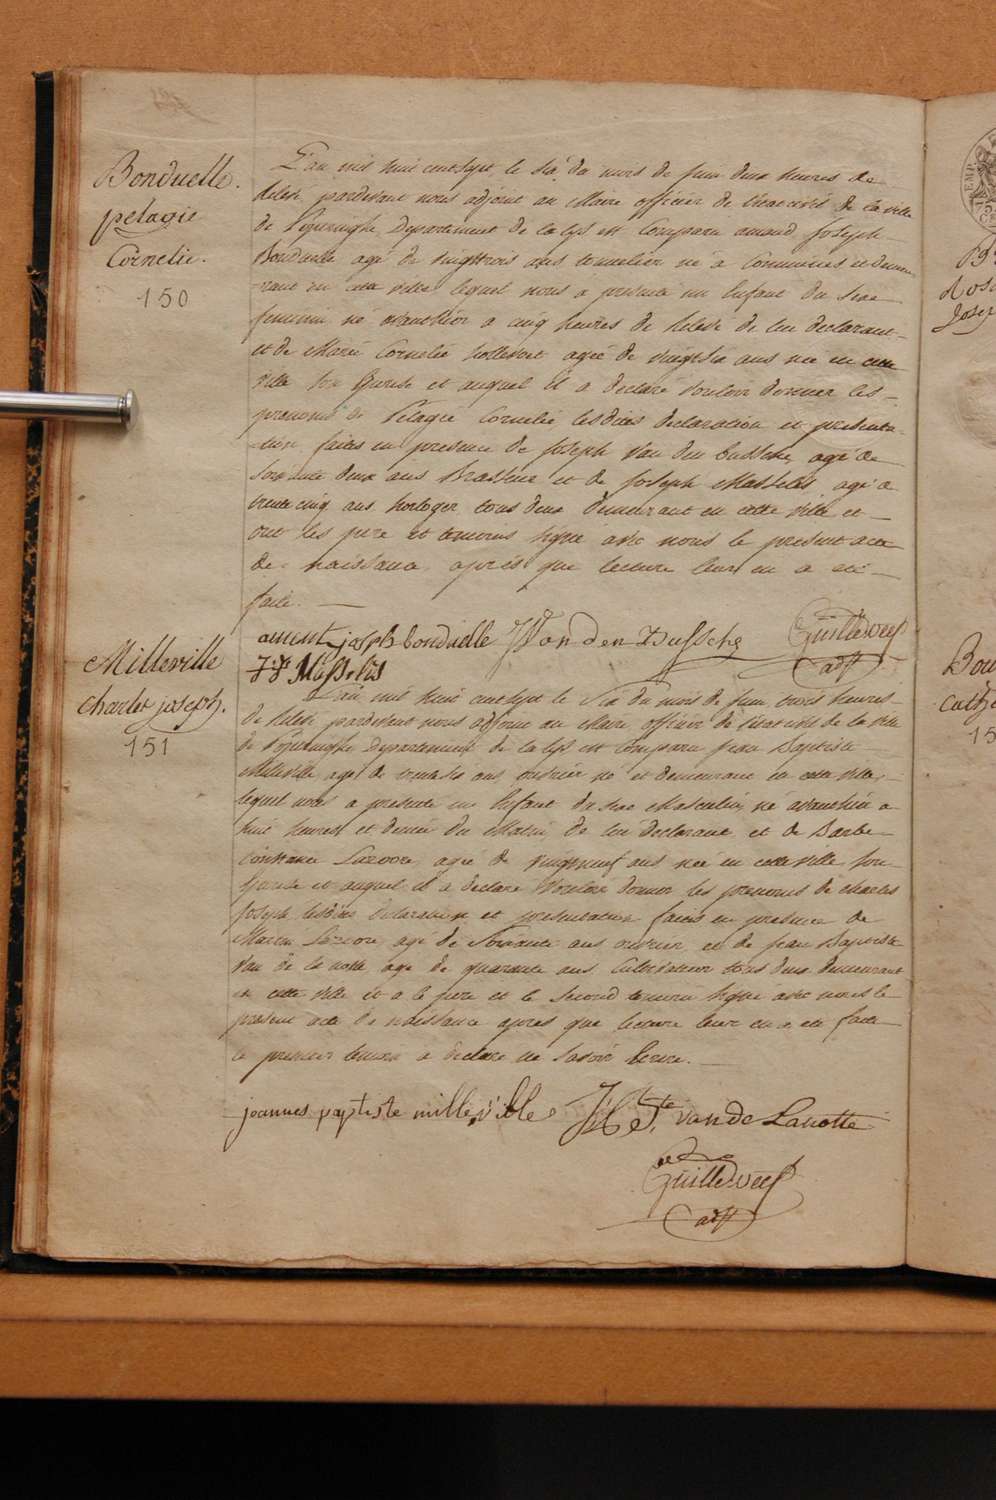 Bonduelle.
pelagie
Cornelie.
150
L'an mil huit cent sept, le six du mois de juin deux heures de
relevé, pardevant nous adjoint au Maire officier de l'état civil de la ville
de Poperinghe, Departement de la Lys est comparu amand Joseph
Bonduelle agé de vingt trois ans tonnelier né a Commines et demeu-
-rant en cette ville lequel nous a presenté un Enfant du sexe
feminin né avanthier a cinq heures de relevé de lui declarant
et de Marie Cornelie hollevoet agée de vingt six ans née en cette
ville son Epouse et auquel il a declaré vouloir donner les
prenoms de Pelagie Cornelie, lesdites declaration et presenta-
-tion faites en presence de Joseph Van den Bussche, agé de
soixante deux ans Brasseur et de Joseph Masselis agé de
trente cinq ans horloger tous deux demeurant en cette ville et
ont les pere et temoins signé avec nous le present acte
de naissance, après que lecture leur en a été
faite.
amant joseph bonduelle JVanden Bussche Guillewees
J: J: Masselis adjt
Milleville
Charles joseph.
151
L'an mil huit cent sept le Six du mois de juin trois heures
de relevé pardevant nous adjoint au Maire officier de l'état civil de la ville
de Poperinghe Departement de la Lys est comparu jean Baptiste
Milleville agé de trente six ans ouvrier né et demeurant en cette ville
lequel nous a presenté un Enfant du sexe Masculin, né avanthier a
huit heures et demie du Matin de lui declarant et de Barbe
Constance agée de vingt neuf ans née en cette ville son
Epouse et auquel il a declaré vouloir donner les prenoms de charles
Joseph, lesdites declaration et presentation faites en presence de
Martin agé de soixante ans ouvrier et de jean Baptiste
Van de la notte agé de quarante ans Cultivateur tous deux demeurant
en cette ville et a le pere et le second temoin signé avec nous le
present acte de naissance après que lecture leur en a été faite
le premier temoin a declaré ne savoir Ecrire.
joannes paptiste milleville J: B Ste. van de Lanotte
Guillewees
adjt
Jose
Bou
Cathe
15